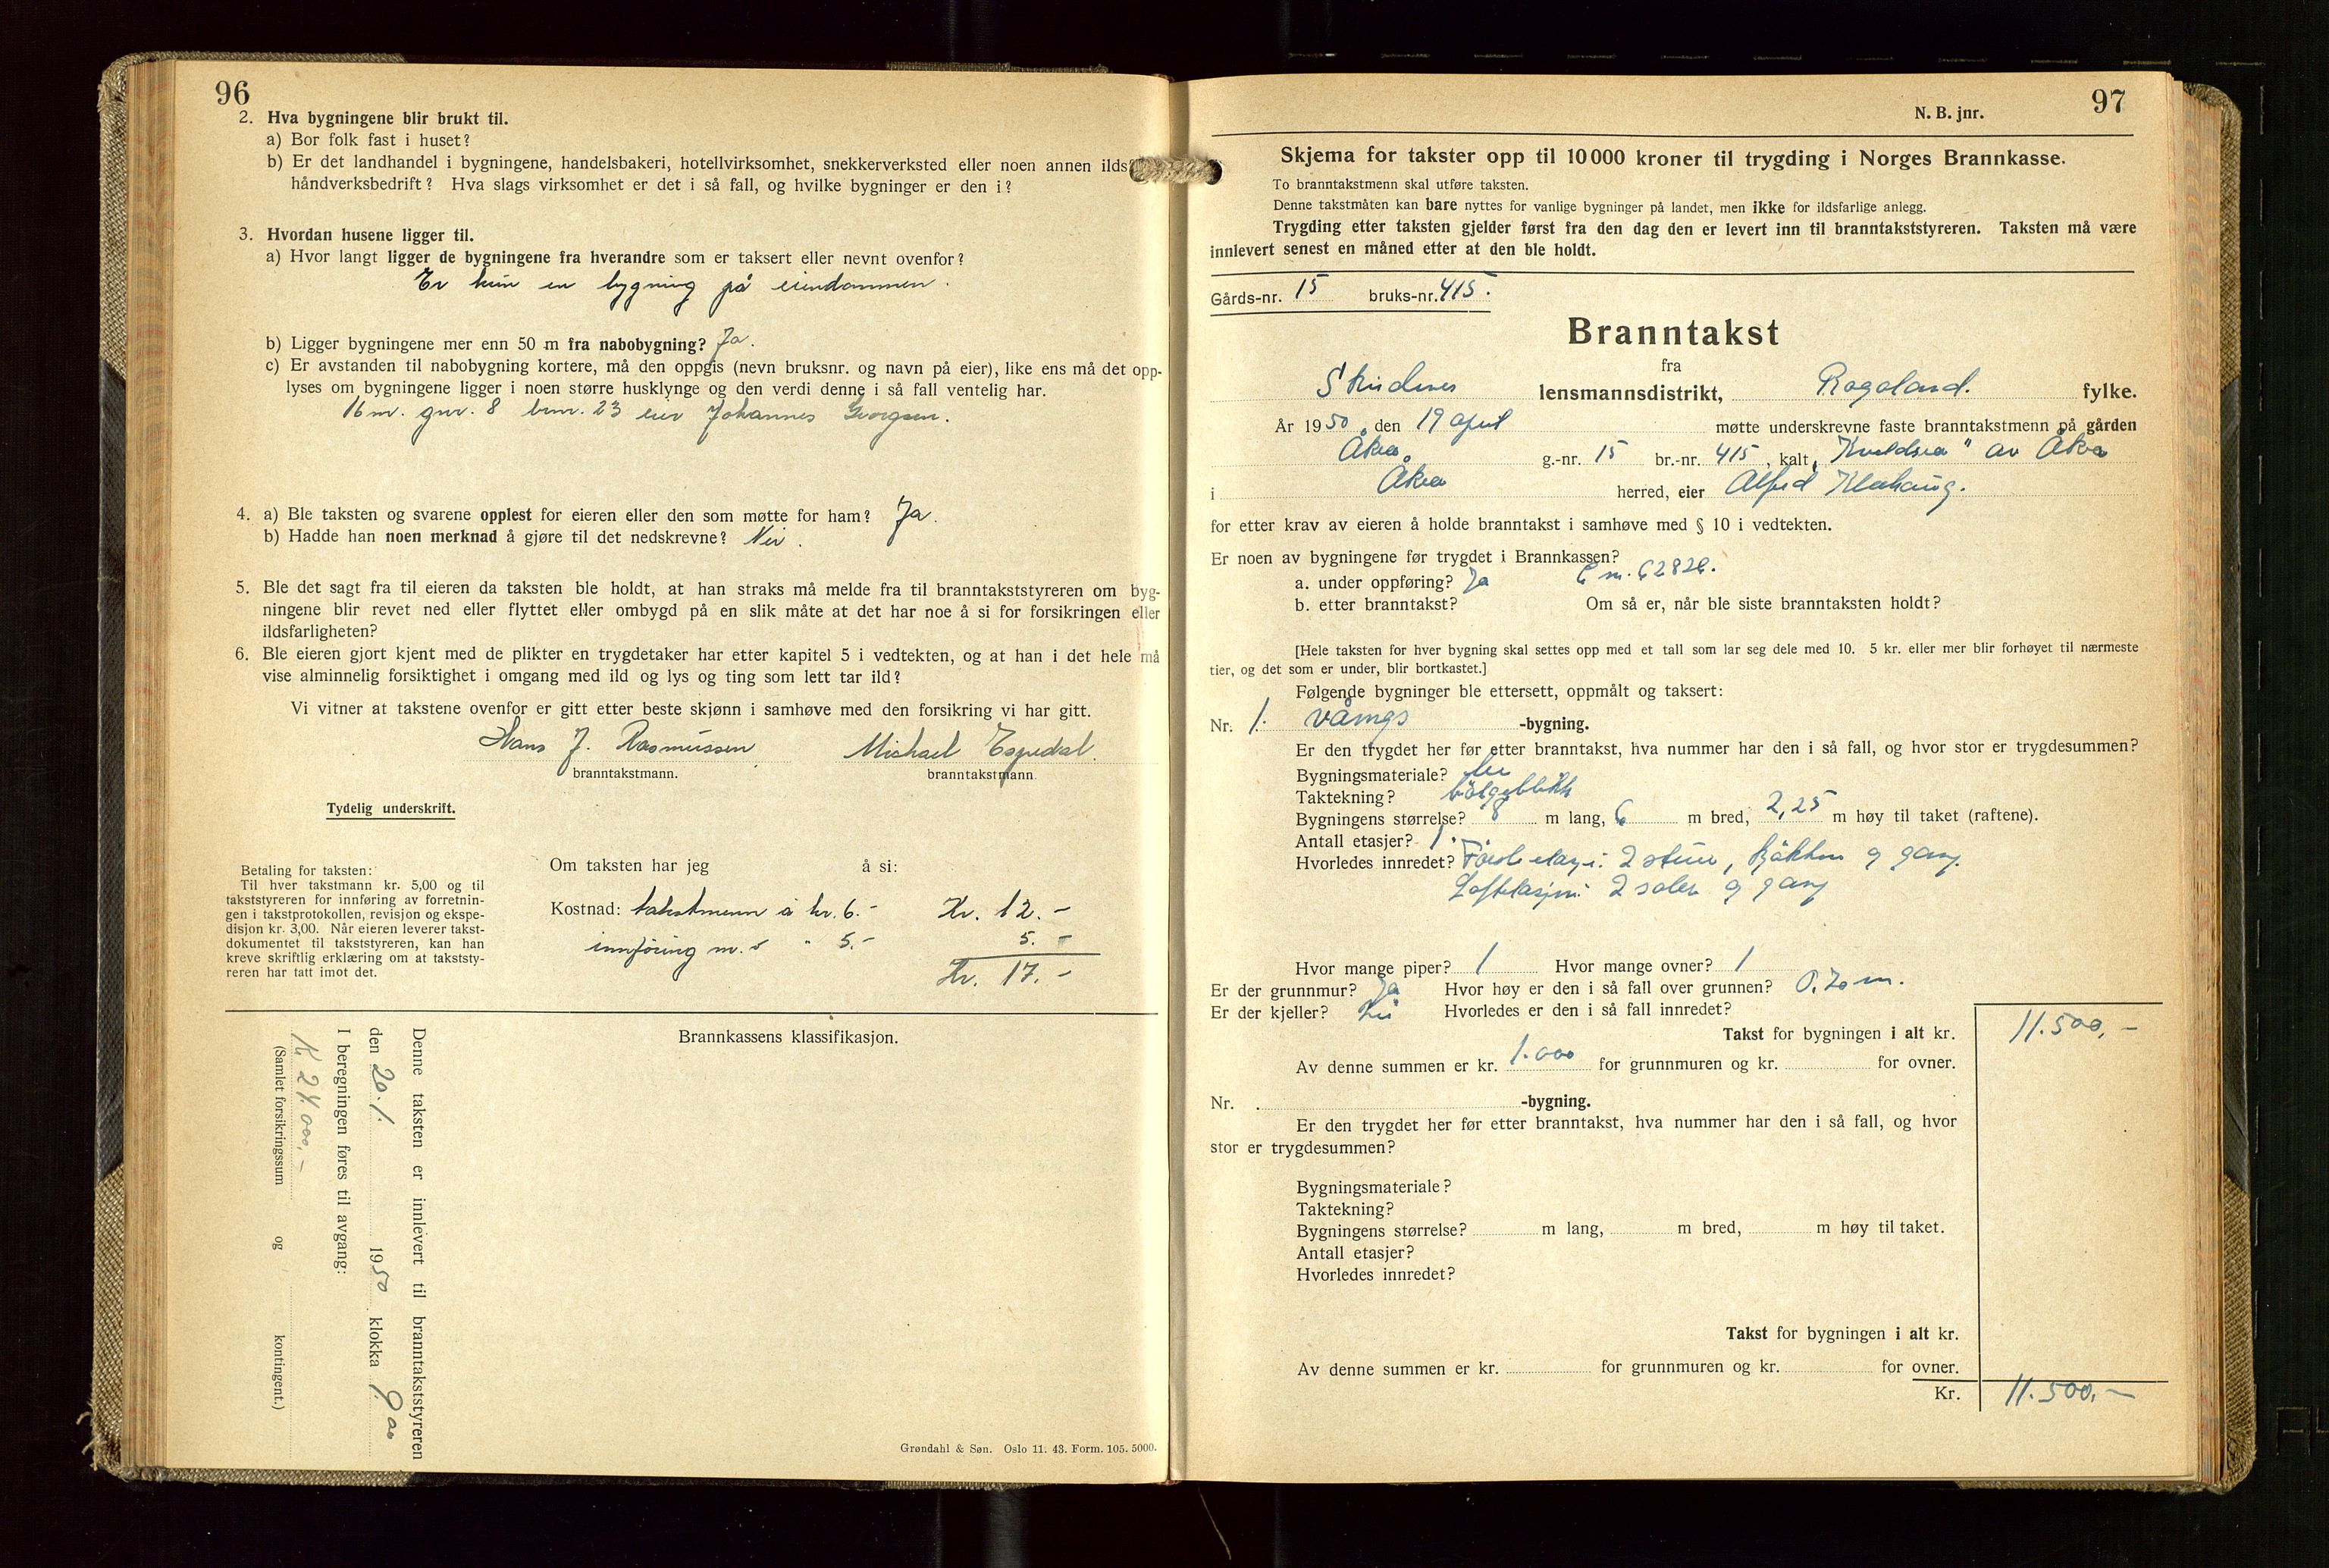 96
2. Hva bygningene blir brukt til.
a) Bor folk fast i huset?
b) Er det landhandel i bygningene, handelsbakeri, hotellvirksomhet, snekkerverksted eller noen annen ilds
håndverksbedrift? Hva slags virksomhet er det i så fall, og hvilke bygninger er den i?
3. Hvordan husene ligger til.
a) Hvor langt ligger de bygningene fra hverandre som er taksert eller nevnt ovenfor?
Er kun en bygning på eiendommen.
b) Ligger bygningene mer enn 50 m fra nabobygning? Ja.
c) Er avstanden til nabobygning kortere, må den oppgis (nevn bruksnr. og navn på eier), like ens må det opp-
lyses om bygningene ligger i noen større husklynge og den verdi denne i så fall ventelig har.
16 m. gnr. 8 bnr. 23 eier Johannes Georgsen.
4. a) Ble taksten og svarene opplest for eieren eller den som møtte for ham? Ja.
b) Hadde han noen merknad å gjøre til det nedskrevne? Nei.
5. Ble det sagt fra til eieren da taksten ble holdt, at han straks må melde fra til branntakststyreren om byg-
ningene blir revet ned eller flyttet eller ombygd på en slik måte at det har noe å si for forsikringen eller
ildsfarligheten?
6. Ble eieren gjort kjent med de plikter en trygdetaker har etter kapitel 5 i vedtekten, og at han i det hele må
vise alminnelig forsiktighet i omgang med ild og lys og ting som lett tar ild?
Vi vitner at takstene ovenfor er gitt etter beste skjønn i samhøve med den forsikring vi har gitt.
Hans J. Rasmussen Michael Espedal.
branntakstmann. branntakstmann.
Tydelig underskrift.
Betaling for taksten:
Til hver takstmann kr. 5,00 og til
takststyreren for innføring av forretnin-
gen i takstprotokollen, revisjon og ekspe-
disjon kr. 3,00. Når eieren leverer takst-
dokumentet til takststyreren, kan han
kreve skriftlig erklæring om at takststy-
reren har tatt imot det.
Om taksten har jeg å si:
Kostnad: takstmenn à kr. 6.- Kr. 12.-
innføring m.v. " 5.- 5.-
Kr. 17.-
Brannkassens klassifikasjon.
Denne taksten er innlevert til branntakststyreren
den 20. 1. 1950 klokka 9 00
I beregningen føres til avgang:
Kr. 24.000.-
(Samlet forsikringssum og kontingent.)
Grøndahl & Søn. Oslo 11. 43. Form. 105. 5000.
N. B. jnr.
97
Skjema for takster opp til 10 000 kroner til trygding i Norges Brannkasse.
To branntakstmenn skal utføre taksten.
Denne takstmåten kan bare nyttes for vanlige bygninger på landet, men ikke for ildsfarlige anlegg.
Trygding etter taksten gjelder først fra den dag den er levert inn til branntakststyreren. Taksten må være
innlevert senest en måned etter at den ble holdt.
Gårds-nr. 15 bruks-nr. 415.
Branntakst
fra
Skudenes lensmannsdistrikt, Rogaland. fylke.
År 1950, den 19 april møtte underskrevne faste branntakstmenn på gården
Åkra. g.-nr. 15 br.-nr. 415, kalt „ " av Åkra
i Åkra herred, eier Alfred
for etter krav av eieren å holde branntakst i samhøve med § 10 i vedtekten.
Er noen av bygningene før trygdet i Brannkassen?
a. under oppføring? Ja
b. etter branntakst? Om så er, når ble siste branntaksten holdt?
[Hele taksten for hver bygning skal settes opp med et tall som lar seg dele med 10. 5 kr. eller mer blir forhøyet til nærmeste
tier, og det som er under, blir bortkastet.]
Følgende bygninger ble ettersett, oppmålt og taksert:
Nr. 1. våings -bygning.
Er den trygdet her før etter branntakst, hva nummer har den i så fall, og hvor stor er trygdesummen?
Bygningsmateriale? tre
Taktekning? bølgeblikk
Bygningens størrelse? 8 m lang, 6 m bred, 2,25 m høy til taket (raftene).
Antall etasjer? 1.
Hvorledes innredet? Förste etasje: 2 stuer, kjøkken og gang.
Loftetasjen: 2 saler og gang
Hvor mange piper? 1 Hvor mange ovner? 1
Er der grunnmur? Ja Hvor høy er den i så fall over grunnen? 0.70 m.
Er der kjeller? Nei Hvorledes er den i så fall innredet?
Takst for bygningen i alt kr. 11.500,-
Av denne summen er kr. 1.000 for grunnmuren og kr. for ovner.
Nr. -bygning.
Er den trygdet her før etter branntakst, hva nummer har den i så fall, og hvor
stor er trygdesummen?
Bygningsmateriale?
Taktekning?
Bygningens størrelse? m lang, m bred, m høy til taket.
Antall etasjer?
Hvorledes innredet?
Takst for bygningen i alt kr.
Av denne summen er kr. for grunnmuren og kr. for ovner.
Kr. 11.500.-